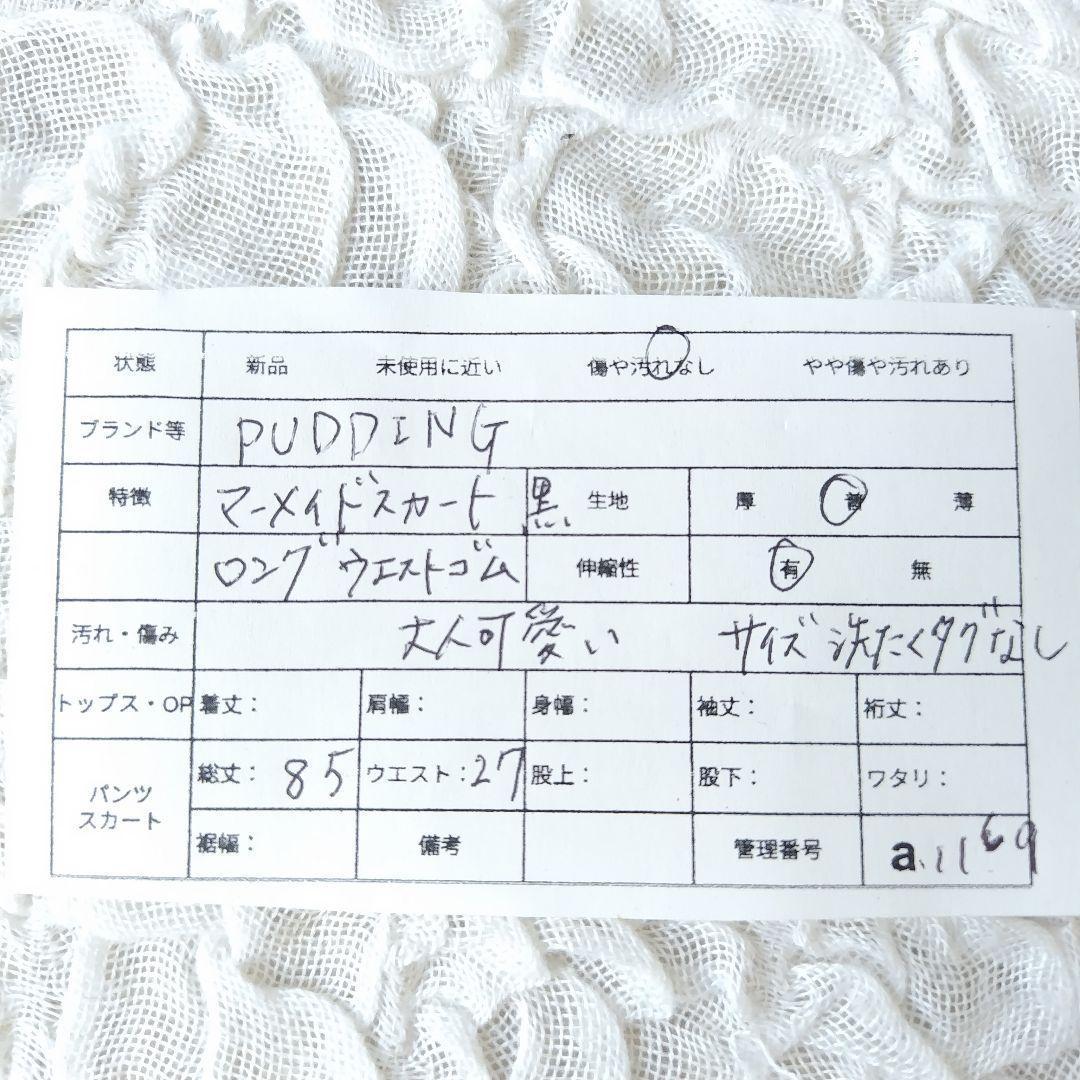 状態 新品 未使用に近い 傷や汚れなし やや傷や汚れあり
ブランド等 PUDDING
特徴 マーメイドスカート 黒 生地 厚 普 薄
ロング ウエストゴム 伸縮性 有 無
汚れ・傷み 大人可愛い サイズ 洗たくタグなし
トップス・OP 着丈： 肩幅： 身幅： 袖丈： 裄丈：
パンツ スカート 総丈： 85 ウエスト：27 股上： 股下： ワタリ：
裾幅： 備考 管理番号 a.1169